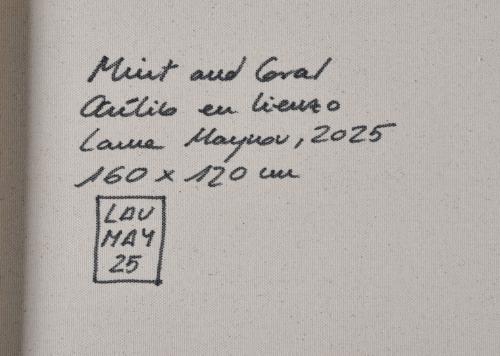 Mint and Coral
Acrílico en lienzo
Laura Maynou, 2025
160 x 120 cm
LAU
MAY
25